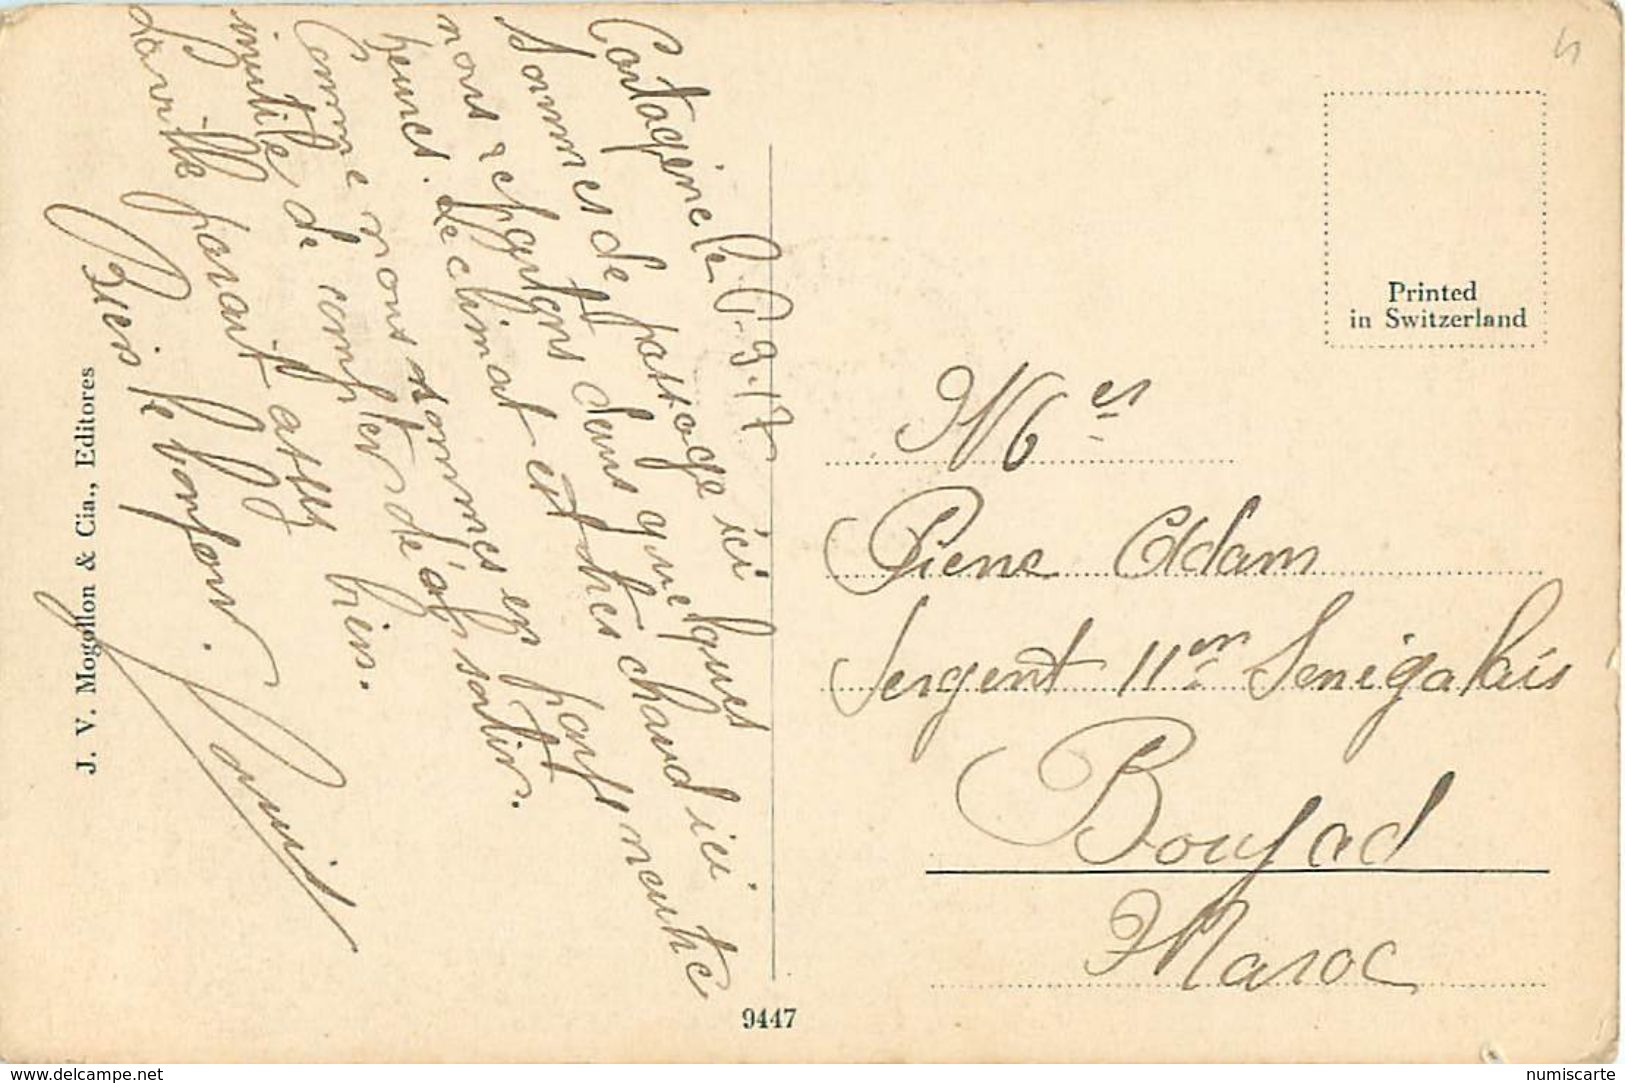 Cartagène le 9-9-17
Sommes de passage ici
nous repartons dans quelques
heures. Le climat est très chaud ici.
Comme nous sommes en pays neutre
inutile de compter de sortir.
La ville parait assez bien.
Bien le bonjour.
Louis
J. V. Mogollon & Cia., Editores
9447
Printed
in Switzerland
Pierre Adam
Sergent 11er Senégalais
Boujad
Maroc
www.delcampe.net
numiscarte